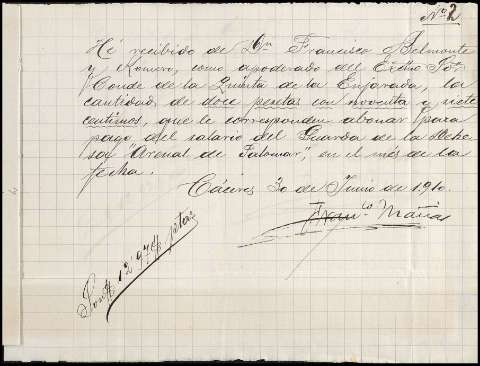 Nº 2
He recibido de Dn Francisco Belmonte
y Romero, como apoderado del Excmo Sor
Conde de la Quinta de la Enjarada, la
cantidad de doce pesetas con noventa y siete
centimos, que le corresponden abonar para
pago del salario del Guarda de la Dehe
sa "Arenal de Palomar", en el mes de la
fecha.
Cáceres 30 de Junio de 1910.
Franco Mañas
Son 12'97 ptas